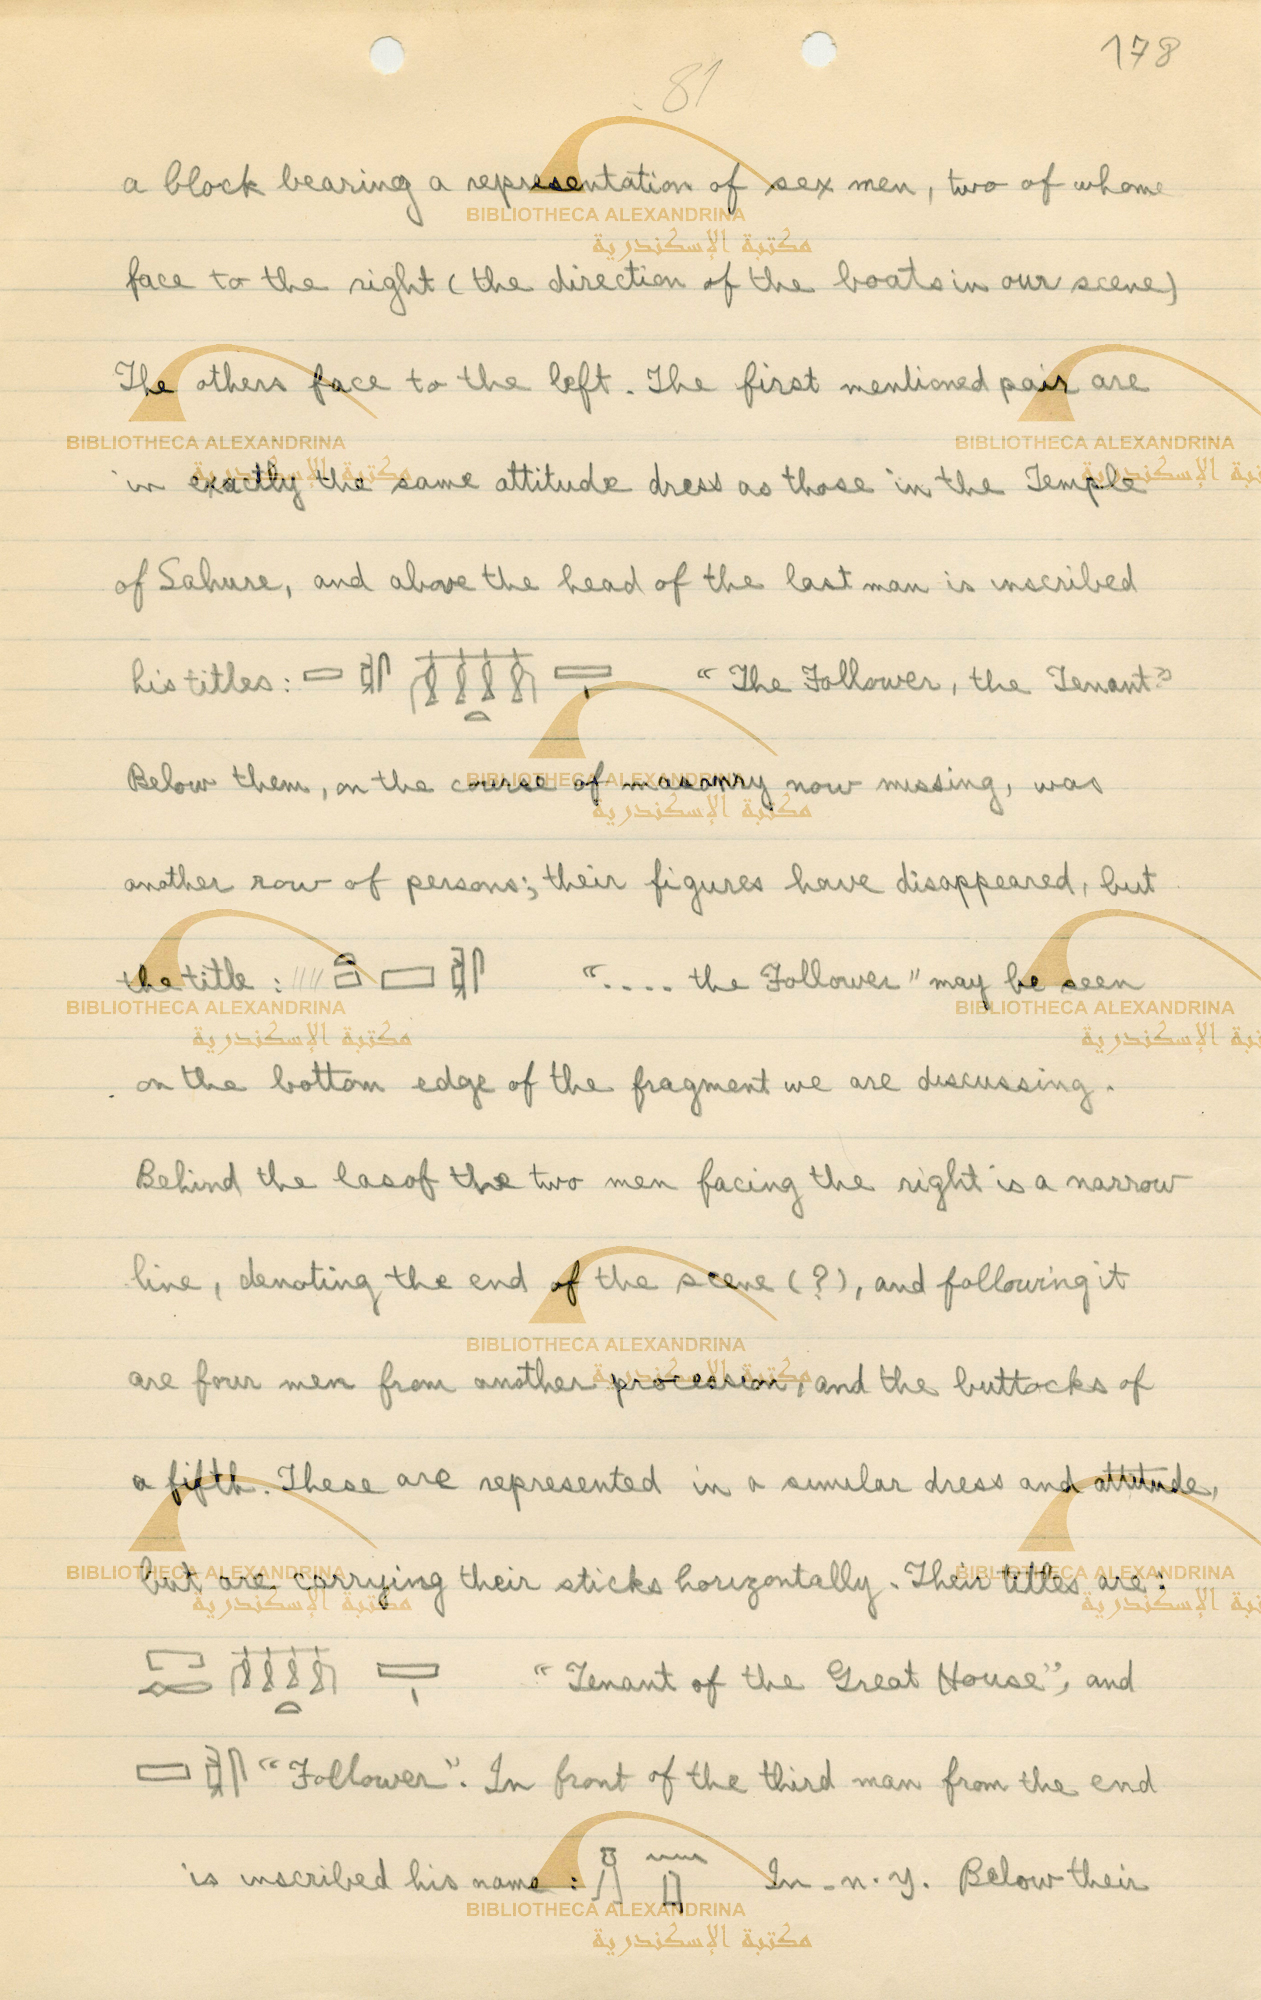 178
81
a block bearing a representation of sex men, two of whome
face to the right (the direction of the boats in our scene)
The others face to the left. The first mentioned pair are
in exactly the same attitude dress as those in the Temple
of Sahure, and above the head of the last man is inscribed
his titles: "The Follower, the Tenant"
Below them, on the course of masonry now missing, was
another row of persons; their figures have disappeared, but
the title: ".... the Follower" may be seen
on the bottom edge of the fragment we are discussing.
Behind the lasof the two men facing the right is a narrow
line, denoting the end of the scene (?), and following it
are four men from another procession, and the buttocks of
a fifth. These are represented in a similar dress and attitude,
but are carrying their sticks horizontally. Their titles are:
"Tenant of the Great House", and
"Follower". In front of the third man from the end
is inscribed his name: In-n.y. Below their
BIBLIOTHECA ALEXANDRINA
مكتبة الإسكندرية